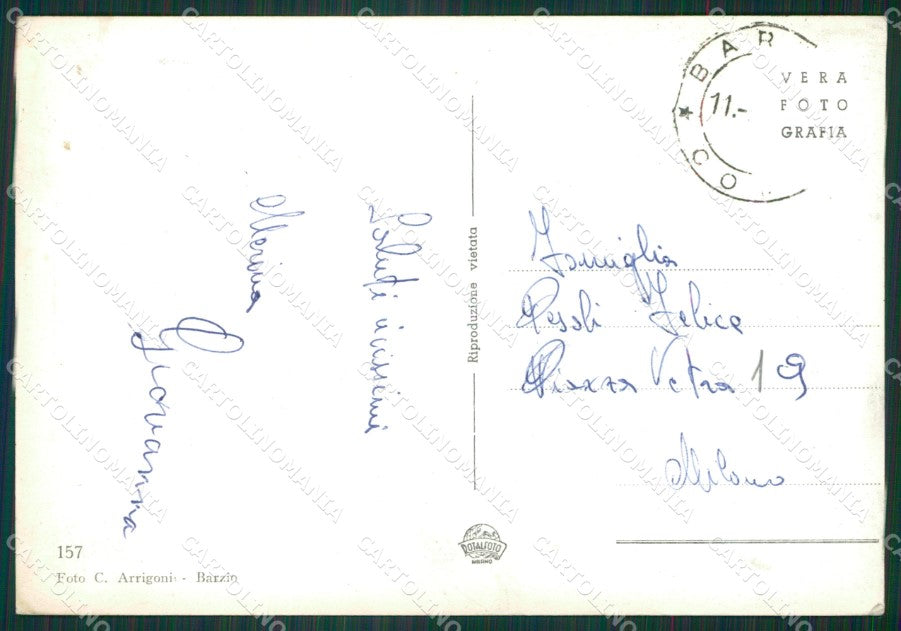 Saluti vivissimi
Marina
Giovanna
157
Foto C. Arrigoni - Barzio
Riproduzione vietata
ROTALFOTO
MILANO
BAR
CO
11.-
VERA
FOTO
GRAFIA
Famiglia
Felice
Piazza Vetra 19
Milano
CARTOLINOMANIA